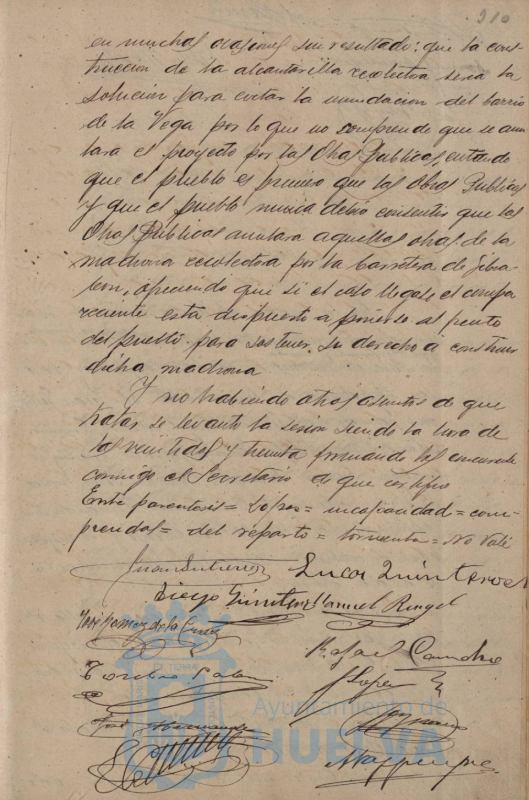 210
en muchas ocasiones sin resultado: que la cons
truccion de la alcantarilla recolectora seria la
solucion para evitar la inundacion del barrio
de la Vega por lo que no comprende que se anu
lara el proyecto por las Obras Publicas, entiendo
que el pueblo es primero que las Obras Publicas
y que el pueblo nunca debio consentir que las
Obras Públicas anulara aquellas obras de la
madrona recolectora por la Carretera de Gibra
leon, ofreciendo que si el caso llegase el compa
reciente esta dispuesto a ponerse al frente
del pueblo para sostener su derecho a construir
dicha madrona
Y no habiendo otros asuntos de que
tratar se levantó la sesion siendo la hora de
las veintidos y treinta firmando los concurrentes
conmigo el Secretario de que certifico
Entre parentesis = Lopez = incapacidad = com-
prendas = del reparto = tormenta = No Vale
Juan Gutierrez Lucas Quintero
Diego Quintero Manuel Rengel
José Gomez de la Cruz
Rafael Camacho
Toribio
J Lopez
José Hernandez
Ayuntamiento de
HUELVA